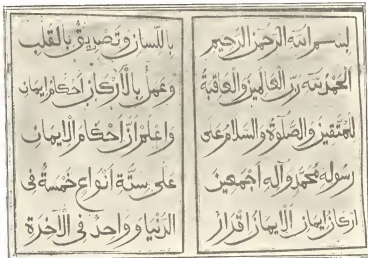 بسم الله الرحمن الرحيم
الحمد لله رب العالمين والعاقبة
للمتقين والصلوة والسلام على
رسوله محمد وآله اجمعين
اركان ايمان الايمان اقرار
باللسان وتصديق بالقلب
وعمل بالأركان احكام ايمان
واعلم ان احكام الايمان
على ستة أنواع خمسة في
الدنيا وواحد في الآخرة